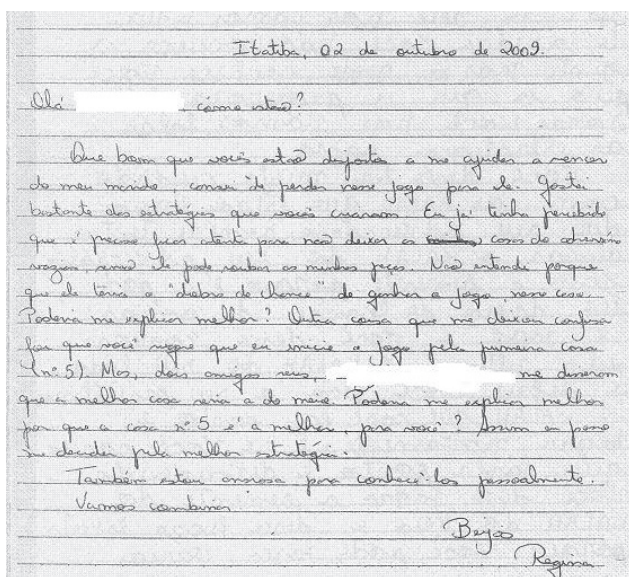 Itatiba, 02 de outubro de 2009.
Olá , como estão?
Que bom que vocês estão dispostos a me ajudar a vencer
do meu marido, cansei de perder nesse jogo para ele. Gostei
bastante das estratégias que vocês criaram. Eu já tinha percebido
que é preciso ficar atenta para não deixar as casas do adversário
vazias, senão ele pode roubar as minhas peças. Não entendi porque
que ele teria o "dobro de chance" de ganhar o jogo, nesse caso.
Poderia me explicar melhor? Outra coisa que me deixou confusa
foi que você sugere que eu inicie o jogo pela primeira casa
(nº 5). Mas, dois amigos seus, me disseram
que a melhor casa seria a do meio. Poderia me explicar melhor
por que a casa nº 5 é a melhor, para você? Assim eu posso
me decidir pela melhor estratégia.
Também estou ansiosa para conhecê-los pessoalmente.
Vamos combinar
Beijos
Regina